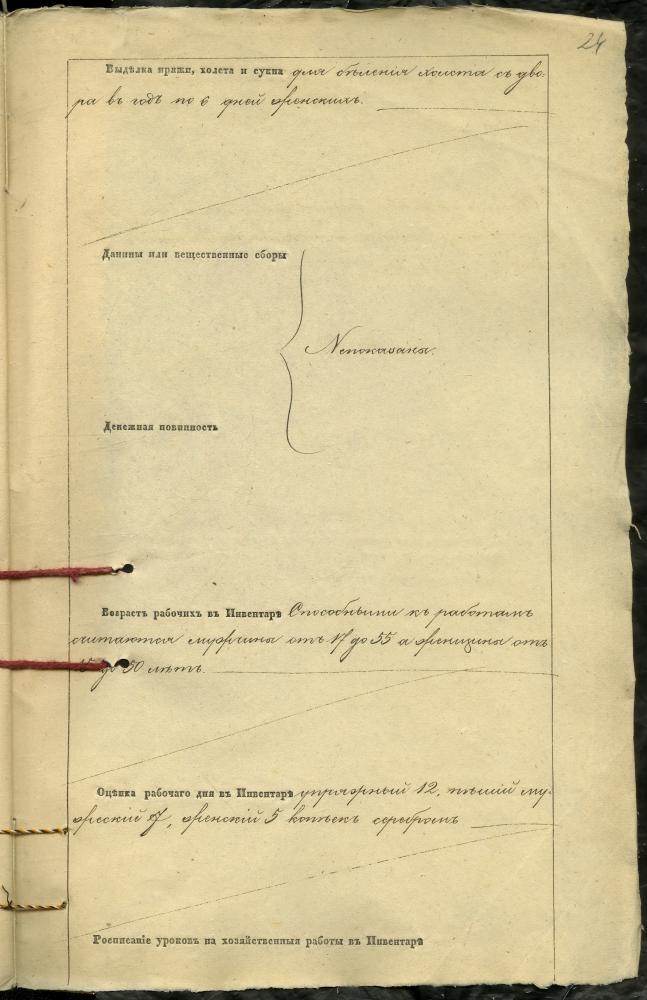 24
Выдѣлка пряжи, холста и сукна для бѣленія холста съ дво-
ра въ годъ по 6 дней женскихъ.
Данины или вещественные сборы
Непоказана.
Денежная повинность
Возрастъ рабочихъ въ Инвентарѣ Способными къ работамъ
считаются мужчина отъ 17 до 55 а женщина отъ
15 до 50 лѣтъ.
Оцѣнка рабочаго дня въ Инвентарѣ упряжный 12, пѣшій му-
жескій 7, женскій 5 копѣекъ серебромъ
Росписаніе уроковъ на хозяйственныя работы въ Инвентарѣ